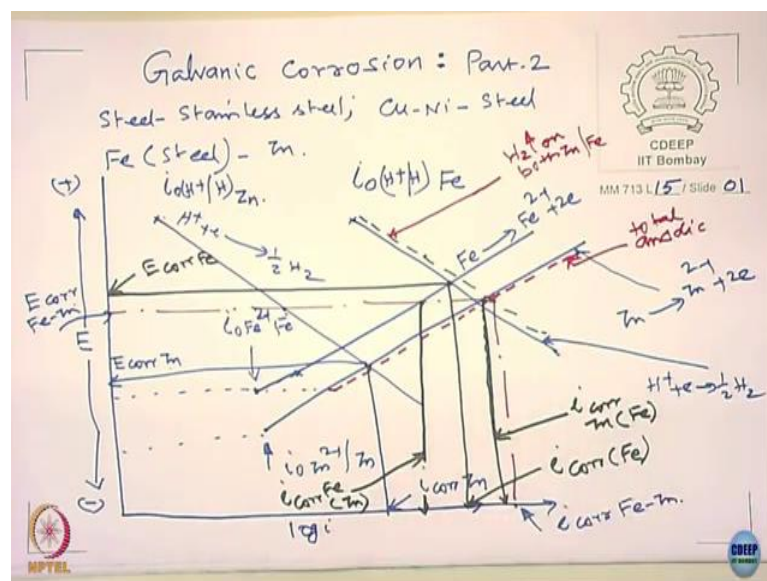 Galvanic Corrosion : Part. 2
Steel- Stainless steel; Cu-Ni- Steel
Fe (Steel) - Zn.
CDEEP
IIT Bombay
MM 713 L 15 / Slide 01
(+)
i₀(H+/H) Zn.
i₀(H+/H) Fe
H₂↑ on
both Zn/Fe
H⁺+e → ½ H₂
Fe → Fe²⁺ + 2e
total
anodic
E corr Fe
E corr
Fe-Zn
E
i₀ Fe²⁺/Fe
Zn → Zn²⁺ + 2e
E corr Zn
H⁺+e → ½ H₂
i corr
Zn (Fe)
i₀ Zn²⁺/Zn
i corr (Fe)
i corr Fe
(Zn)
i corr Zn
i corr Fe-Zn.
(-)
log i
NPTEL
CDEEP
IIT BOMBAY